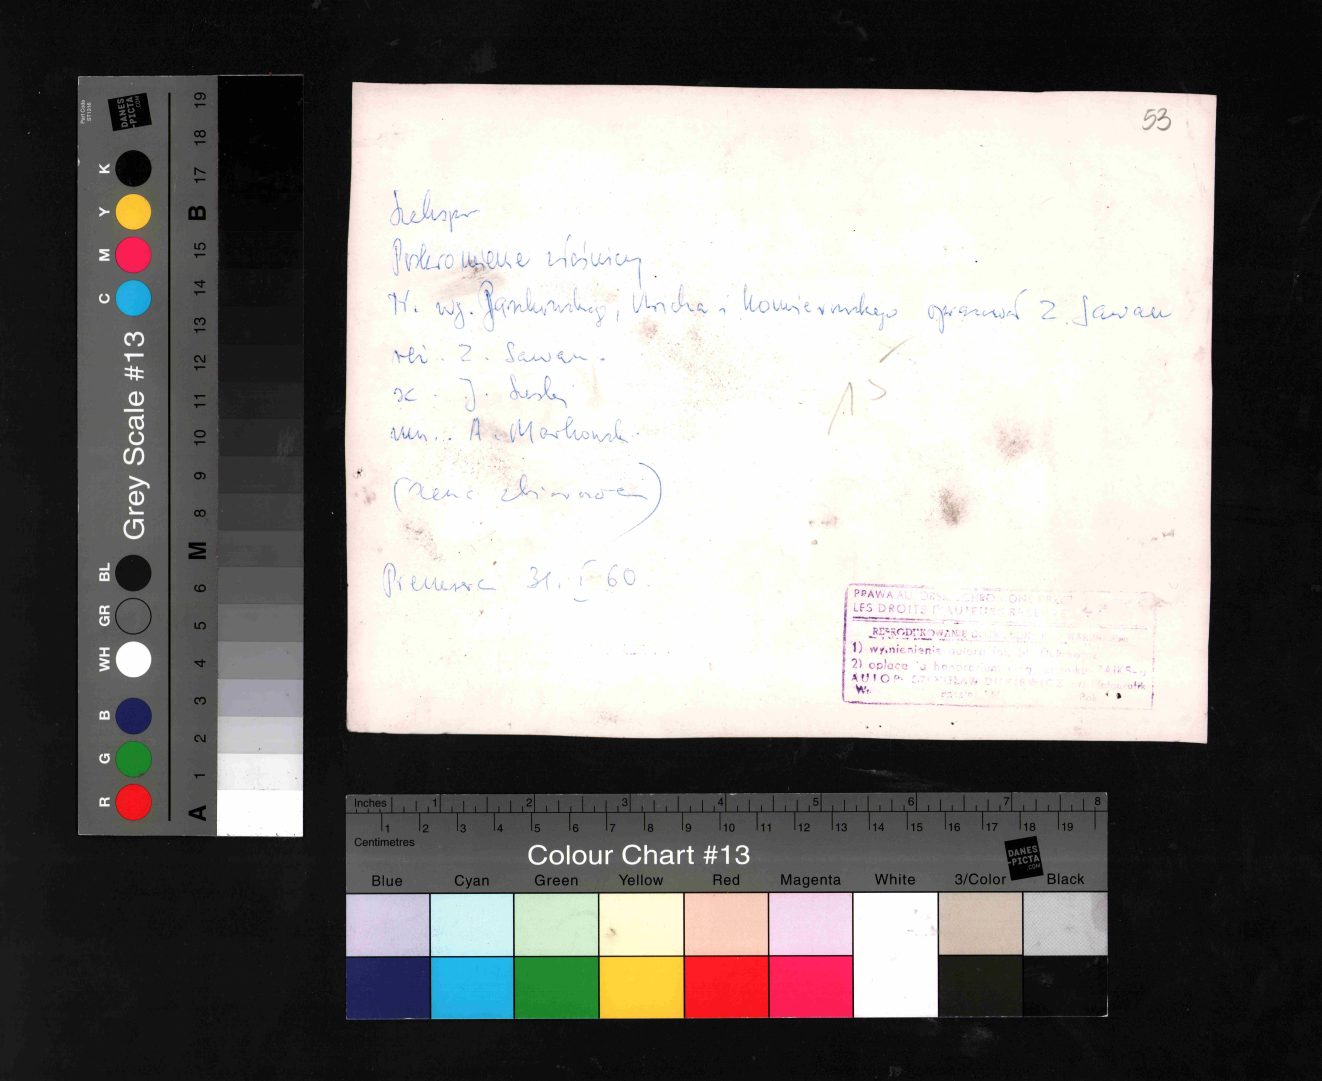 53
Szekspir
Poskromienie złośnicy
tł. wg. Paszkowskiego, Ulricha i Komierowskiego opracował Z. Sawan
reż. Z. Sawan.
sc. J.
mu. A. Markowski
(scena zbiorowa)
Premiera 31. I 60.
13
PRAWA AUTORSKIE
LES DROITS D'AUTEURS
REPRODUKOWANIE
1) wymienienia autora
2) opłacenia honorarium ZAIKS-u
AUTOR:
Grey Scale #13
DANES
-PICTA
.COM
K Y M C
BL GR WH B G R
19 18 17 B 15 14 13 12 11 10 9 8 M 6 5 4 3 2 1 A
Inches 1 2 3 4 5 6 7 8
1 2 3 4 5 6 7 8 9 10 11 12 13 14 15 16 17 18 19
Centimetres
Colour Chart #13
DANES
-PICTA
.COM
Blue Cyan Green Yellow Red Magenta White 3/Color Black